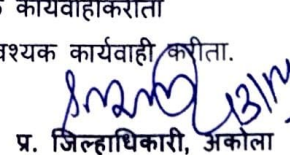 कार्यवाहीकरीता
वश्यक कार्यवाही करीता.
प्र. जिल्हाधिकारी, अकोला